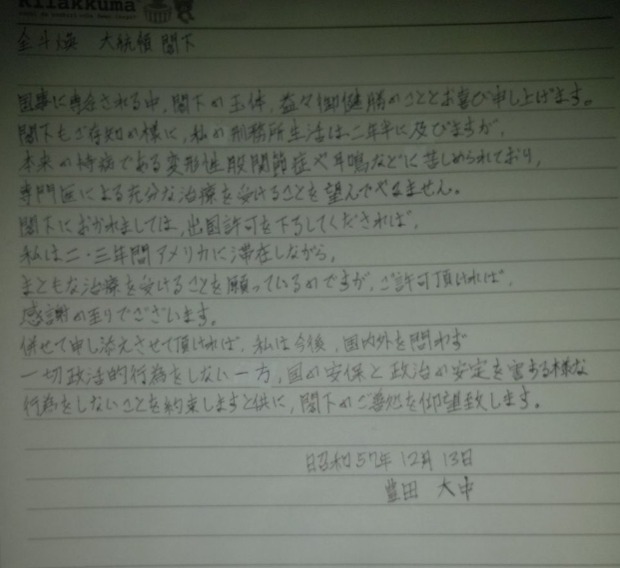 Rilakkuma
全斗煥 大統領 閣下
国事に専念される中、閣下の玉体、益々御健勝のこととお喜び申し上げます。
閣下もご存知の様に、私の刑務所生活は二年半に及びますが、
本来の持病である変形性股関節症や耳鳴などに苦しめられており、
専門医による充分な治療を受けることを望んでやるません。
閣下におかれましては、出国許可を下してくだされば、
私は二・三年間アメリカに滞在しながら、
まともな治療を受けることを願っているのですが、ご許可頂ければ、
感謝の至りでございます。
併せて申し添えさせて頂ければ、私は今後、国内外を問わず
一切政治的行為をしない一方、国の安保と政治の安定を害する様な
行為をしないことを約束しますと供に、閣下のご善処を仰望致します。
昭和57年 12月 13日
豊田 大中